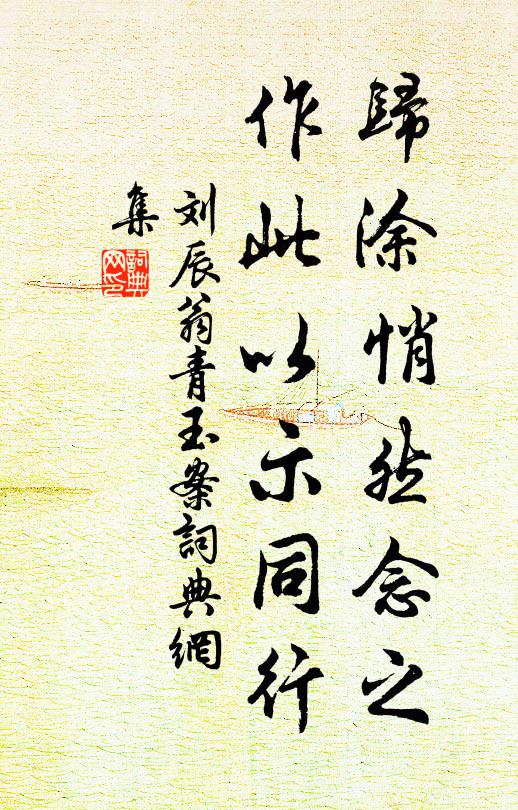 歸涂悄然念之
作此以示同行
刘辰翁青玉案詞典網
集
詞典
网印